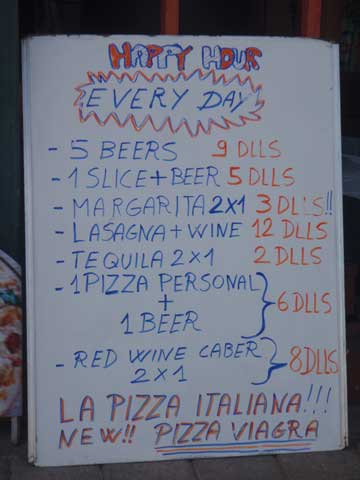 HAPPY HOUR
EVERY DAY
- 5 BEERS 9 DLLS
- 1 SLICE + BEER 5 DLLS
- MARGARITA 2X1 3 DLLS!!
- LASAGNA + WINE 12 DLLS
- TEQUILA 2X1 2 DLLS
- 1 PIZZA PERSONAL
+
1 BEER
6 DLLS
- RED WINE CABER
2X1
8 DLLS
LA PIZZA ITALIANA!!!
NEW!! PIZZA VIAGRA